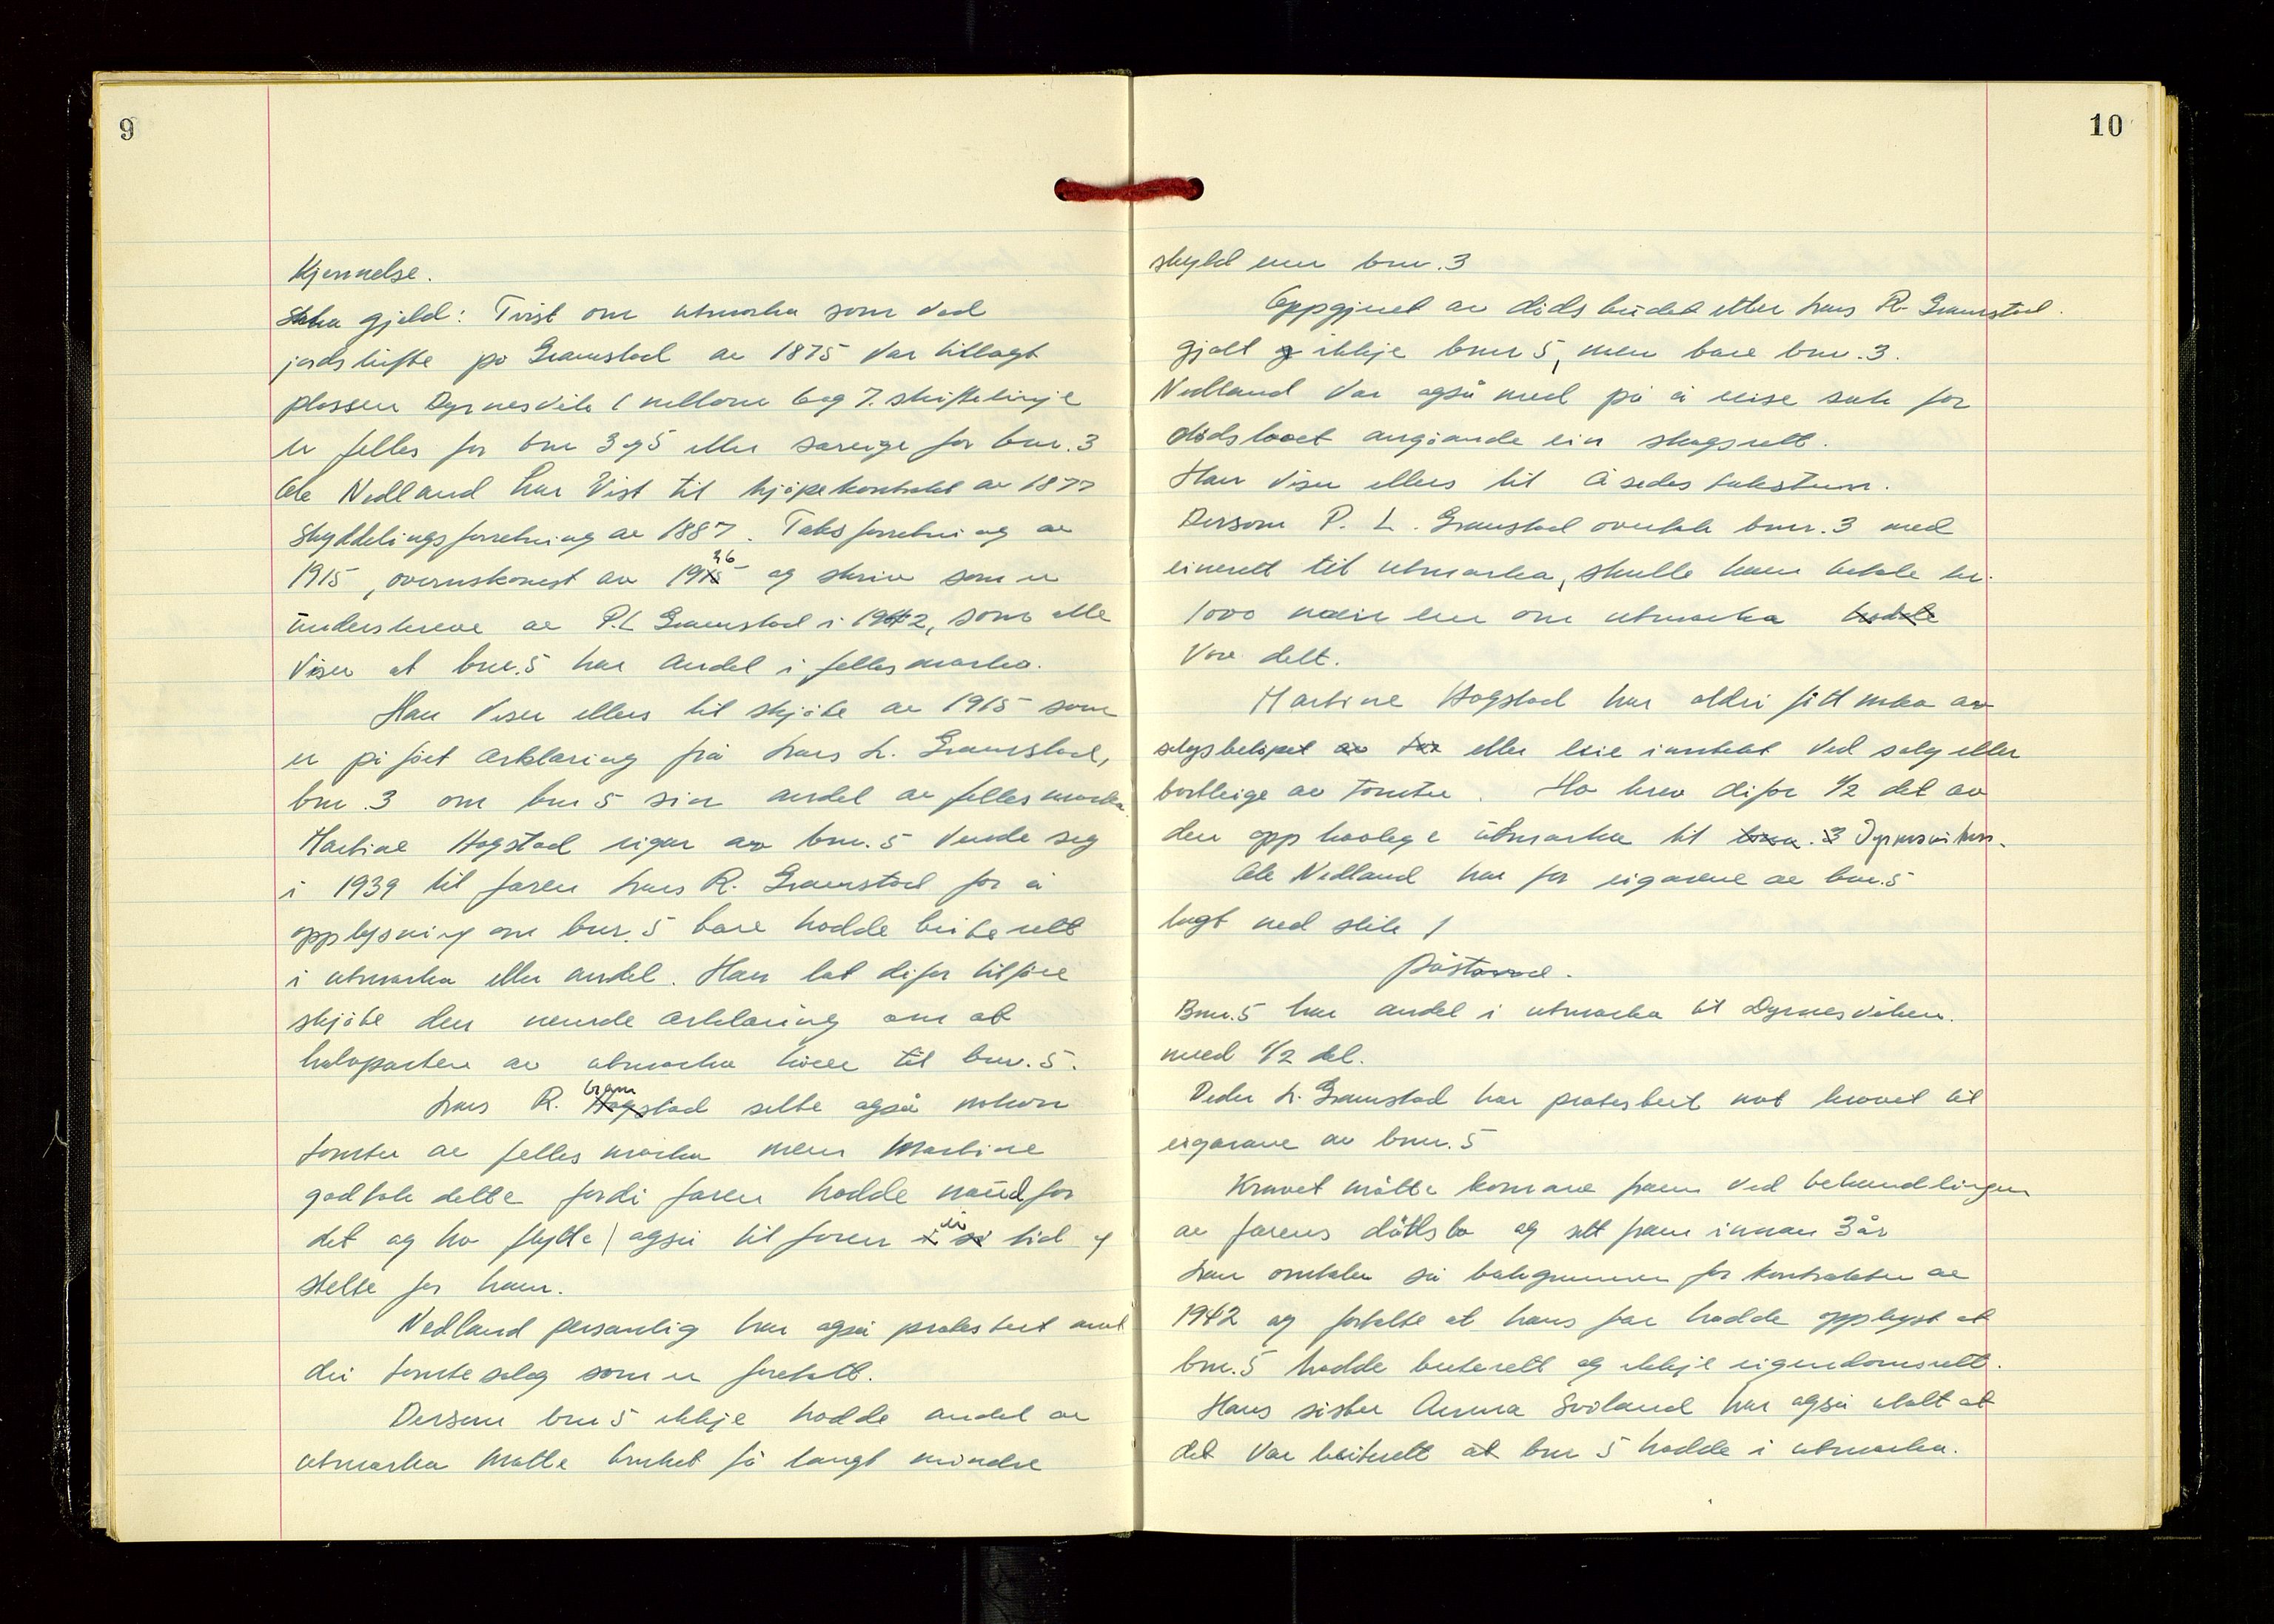 9
Kjennelse.
Saka gjeld: Tvist om utmarka som ved
jordskifte på Gramstad av 1875 var tillagt
plassen Dyrnesvik (mellom 6 og 7. skiftelinje
er felles for bnr 3 og 5 eller særeige for bnr. 3
Ole Nedland har vist til kjøpekontrakt av 1877
Skylddelingsforretning av 1887. Taksforretning av
1915, overenskomst av 1936 og skriv som er
underskreve av P.L Gramstad i 1942, som alle
viser at bnr. 5 har andel i fellesmarka.
Han viser ellers til skjøte av 1915 som
er på ført erklæring frå Lars L. Gramstad,
bnr. 3 om bnr 5 sin andel av fellesmarka
Martine Hogstad eigar av bnr. 5 vende seg
i 1939 til faren Lars R. Gramstad for å
opplysning om bnr. 5 bare hadde beiterett
i utmarka eller andel. Han lot difor tilføre
skjøte den nemnde erklæring om at
halvparten av utmarka hører til bnr. 5.
Lars R. Gramstad selte også nokon
tomter av fellesmarka men Martine
godtok dette fordi faren hadde naud for
det og ho flytte også til faren ei tid og
stelte for ham.
Nedland personlig har også protestert mot
dei tomtesalg som er foretatt.
Dersom bnr 5 ikkje hadde andel av
utmarka måtte bruket få langt mindre
10
skyld enn bnr. 3
Oppgjeret av dødsbudet etter Lars R. Gramstad.
gjalt ikkje bnr 5, men bare bnr. 3.
Nedland var også med på å reise sak for
dødsboet angåande ein skogsrett.
Han viser ellers til åsedes taksten.
Dersom P. L. Gramstad overtok bnr. 3 med
einerett til utmarka, skulle han betale kr.
1000 meir enn om utmarka
var delt.
Martine Hogstad har aldri fått noka av
salgsbeløpet eller leie inntekt ved salg eller
bortleige av tomter. Ho krev difor 1/2 del av
den opphavlege utmarka til Dyrnesviken.
Ole Nedland har for eigarene av bnr. 5
lagt ned slik
påstand.
Bnr. 5 har andel i utmarka til Dyrnesviken.
med 1/2 del.
Peder L. Gramstad har protestert mot kravet til
eigarane av bnr. 5
Kravet måtte komme fram ved behandlingen
av farens dødsbo og sett fram innan 3 år
Han omtaler så bakgrunnen for kontrakten av
1942 og fortalte at hans far hadde opplyst at
bnr. 5 hadde beiterett og ikkje eigendomsrett.
Hans sister Anna Svoland har også uttalt at
det var beiterett at bnr 5 hadde i utmarka.